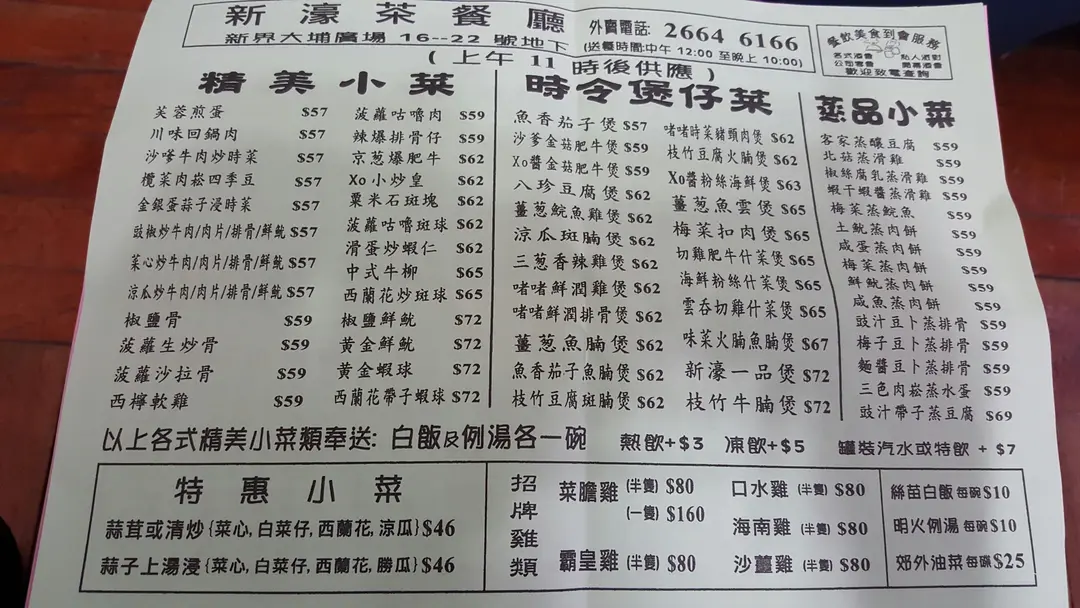 新濠茶餐廳
新界大埔廣場 16--22 號地下
外賣電話: 2664 6166
(送餐時間:中午 12:00 至晚上 10:00)
餐飲美食到會服務
各式酒會 私人派對
公司宴會 開幕酒會
歡迎致電查詢
(上午 11 時後供應)
精美小菜
芙蓉煎蛋 $57
川味回鍋肉 $57
沙嗲牛肉炒時菜 $57
欖菜肉崧四季豆 $57
金銀蛋蒜子浸時菜 $57
豉椒炒牛肉/肉片/排骨/鮮魷 $57
菜心炒牛肉/肉片/排骨/鮮魷 $57
涼瓜炒牛肉/肉片/排骨/鮮魷 $57
椒鹽骨 $59
菠蘿生炒骨 $59
菠蘿沙拉骨 $59
西檸軟雞 $59
菠蘿咕嚕肉 $59
辣爆排骨仔 $59
京葱爆肥牛 $62
Xo小炒皇 $62
粟米石斑塊 $62
菠蘿咕嚕斑球 $62
滑蛋炒蝦仁 $62
中式牛柳 $65
西蘭花炒斑球 $65
椒鹽鮮魷 $72
黃金鮮魷 $72
黃金蝦球 $72
西蘭花帶子蝦球 $72
時令煲仔菜
魚香茄子煲 $57
沙爹金菇肥牛煲 $59
Xo醬金菇肥牛煲 $59
八珍豆腐煲 $62
薑葱鯇魚雞煲 $62
涼瓜斑腩煲 $62
三葱香辣雞煲 $62
啫啫鮮潤雞煲 $62
啫啫鮮潤排骨煲 $62
薑葱魚腩煲 $62
魚香茄子魚腩煲 $62
枝竹豆腐斑腩煲 $62
啫啫時菜豬頸肉煲 $62
枝竹豆腐火腩煲 $62
Xo醬粉絲海鮮煲 $63
薑葱魚雲煲 $65
梅菜扣肉煲 $65
切雞肥牛什菜煲 $65
海鮮粉絲什菜煲 $65
雲吞切雞什菜煲 $65
味菜火腩魚腩煲 $67
新濠一品煲 $72
枝竹牛腩煲 $72
蒸品小菜
客家蒸釀豆腐 $59
北菇蒸滑雞 $59
椒絲腐乳蒸滑雞 $59
蝦干蝦醬蒸滑雞 $59
梅菜蒸鯇魚 $59
土魷蒸肉餅 $59
咸蛋蒸肉餅 $59
梅菜蒸肉餅 $59
鮮魷蒸肉餅 $59
咸魚蒸肉餅 $59
豉汁豆卜蒸排骨 $59
梅子豆卜蒸排骨 $59
麵醬豆卜蒸排骨 $59
三色肉崧蒸水蛋 $59
豉汁帶子蒸豆腐 $69
以上各式精美小菜類奉送: 白飯及例湯各一碗 熱飲+$3 凍飲+$5 罐裝汽水或特飲 + $7
特惠小菜
蒜茸或清炒{菜心, 白菜仔, 西蘭花, 涼瓜}$46
蒜子上湯浸{菜心, 白菜仔, 西蘭花, 勝瓜}$46
招牌雞類
菜膽雞 (半隻) $80
(一隻) $160
霸皇雞 (半隻) $80
口水雞 (半隻) $80
海南雞 (半隻) $80
沙薑雞 (半隻) $80
絲苗白飯 每碗 $10
明火例湯 每碗 $10
郊外油菜 每碟 $25